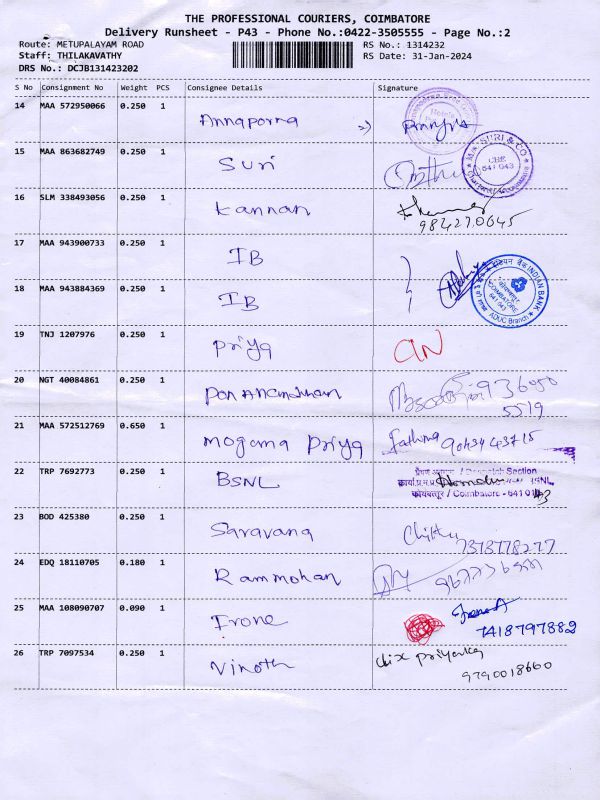 THE PROFESSIONAL COURIERS, COIMBATORE
Delivery Runsheet - P43 - Phone No.:0422-3505555 - Page No.:2
Route: METUPALAYAM ROAD RS No.: 1314232
Staff: THILAKAVATHY RS Date: 31-Jan-2024
DRS No.: DCJB131423202
S No Consignment No Weight PCS Consignee Details Signature
14 MAA 572950066 0.250 1
Annaporna
15 MAA 863682749 0.250 1
Suri M/s. SURI & CO
CBE
641 043
16 SLM 338493056 0.250 1
Kannan
9842720645
17 MAA 943900733 0.250 1
IB
18 MAA 943884369 0.250 1
IB इंडियन बैंक INDIAN BANK
COIMBATORE
641 041
Branch
19 TNJ 1207976 0.250 1
Priya
20 NGT 40084861 0.250 1
Pon 936050
5519
21 MAA 572512769 0.650 1
Mogama Priya Fathima 9043443715
22 TRP 7692773 0.250 1
BSNL / Despatch Section
BSNL
कोयंबत्तूर / Coimbatore - 641 043
23 BOD 425380 0.250 1
Saravana
7373778277
24 EDQ 18110705 0.180 1
Rammohan
25 MAA 108090707 0.090 1
Irone
7418797882
26 TRP 7097534 0.250 1
Vinoth Priyanka
9790018660